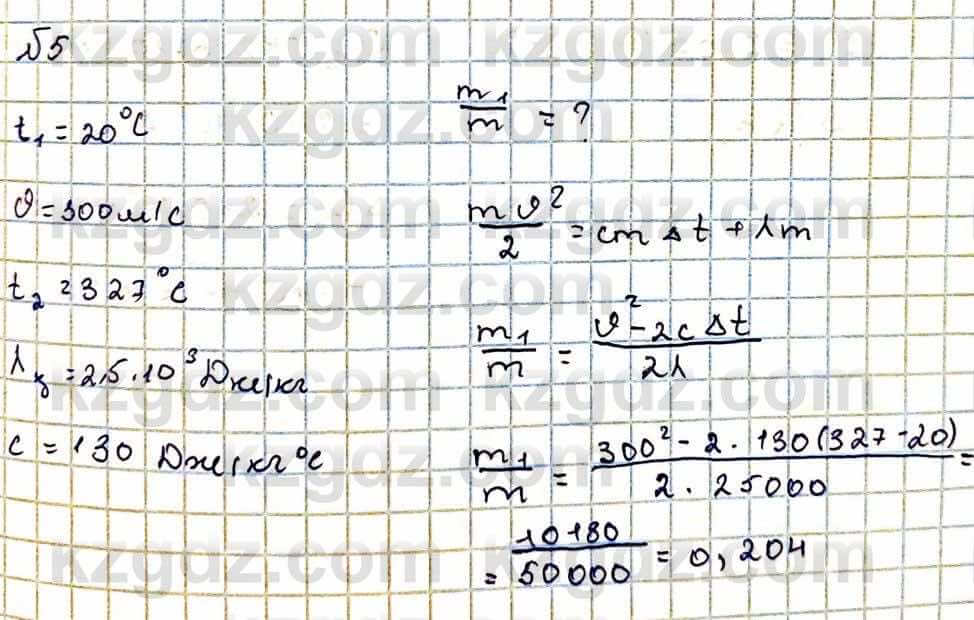 №5
t₁ = 20°C
m₁/m = ?
υ = 300 м/с
mυ²/2 = cmΔt + λm
t₂ = 327°C
m₁/m = (υ² - 2cΔt)/2λ
= 2,5 · 10³ Дж/кг
c = 130 Дж/кг°C
m₁/m = (300² - 2 · 130(327 - 20))/(2 · 25000) =
= 10180/50000 = 0,204
kzgdz.com kzgdz.com